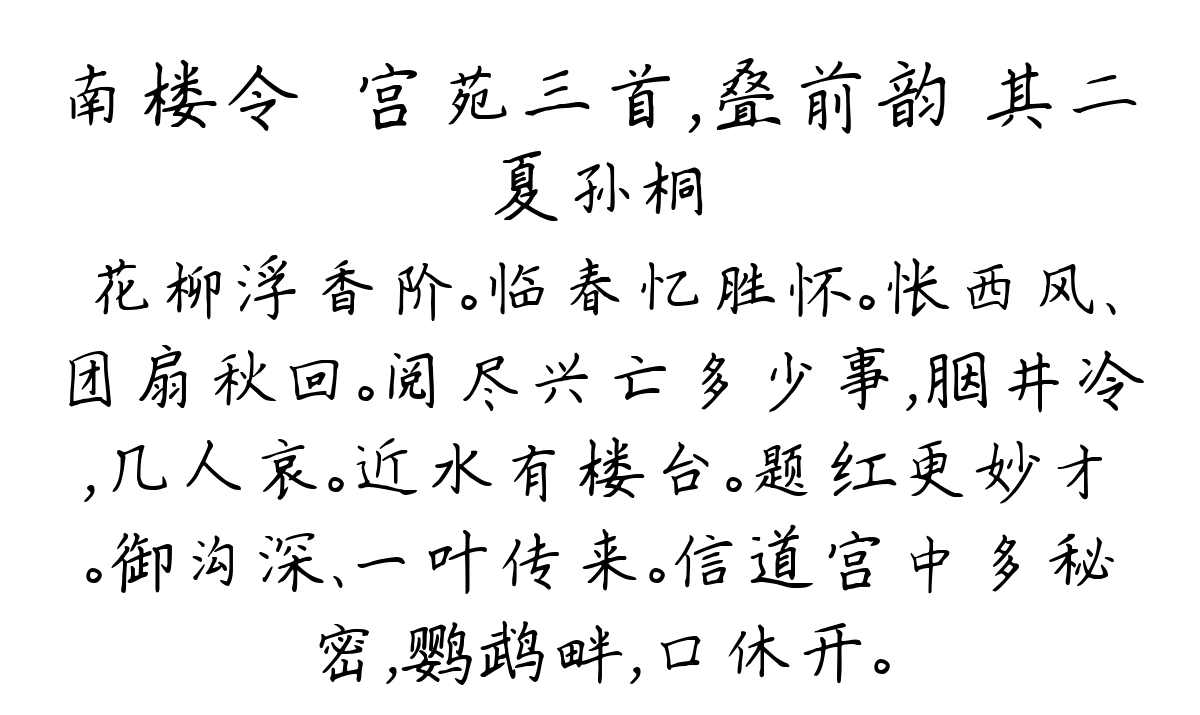 南楼令 宫苑三首,叠前韵 其二
夏孙桐
花柳浮香阶。临春忆胜怀。怅西风、
团扇秋回。阅尽兴亡多少事,胭井冷
,几人哀。近水有楼台。题红更妙才
。御沟深、一叶传来。信道宫中多秘
密,鹦鹉畔,口休开。